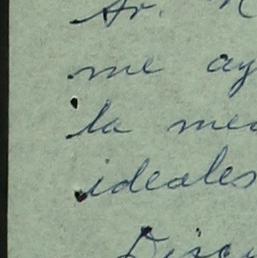 Sr. N
me ay
la me
ideales
Discu